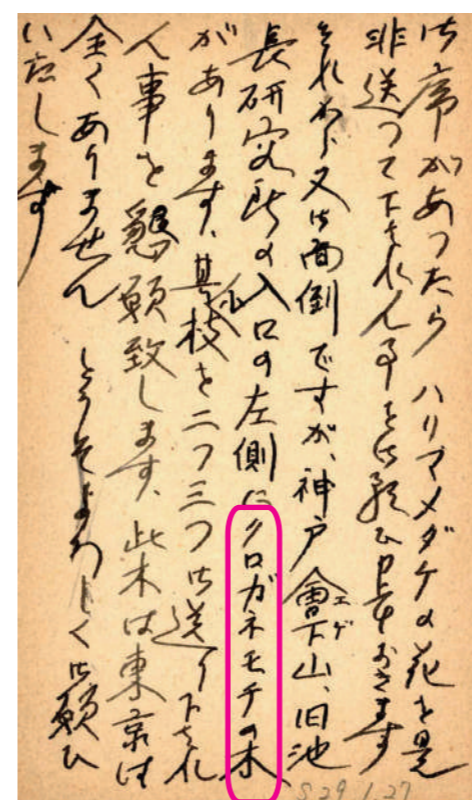 御席があつたら ハリマメダケの花を是
非送つて下されん事を御願ひ申上おきます
それから又御面倒ですが、神戸會下山、旧池
エゲ
長研究所の入口の左側にクロガネモチの木
があります、其小枝を二つ三つ御送り下され
ん事を懇願致します、此木は東京には
全くありません どうぞよろしく御願ひ
い志します
S29 1.27